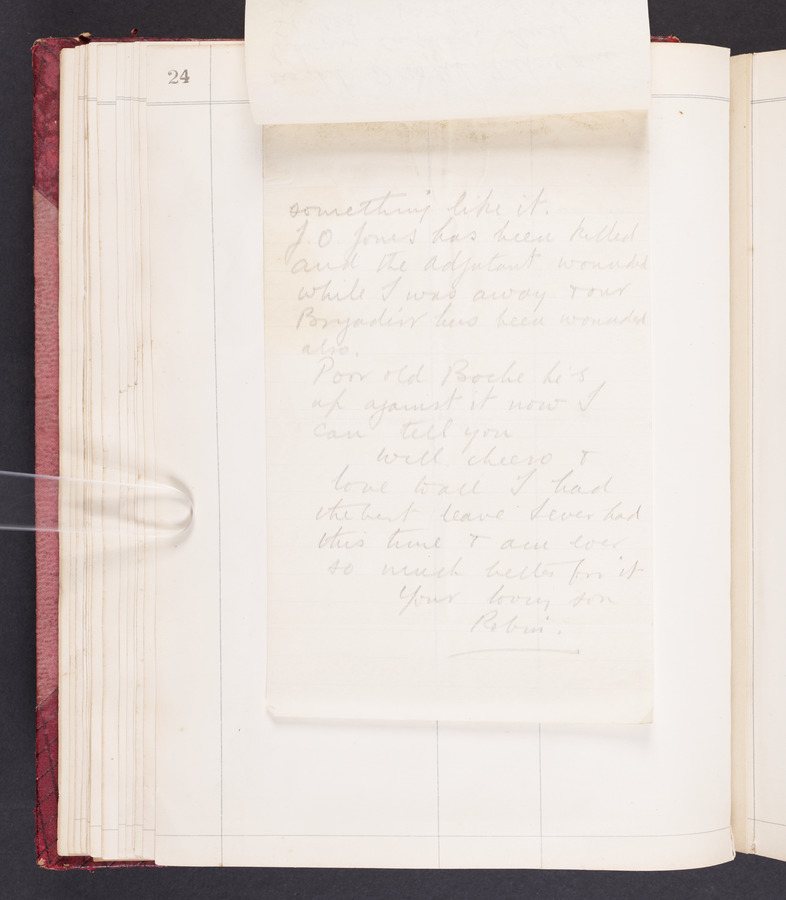 24
something like it.
J O Jones has been killed
and the adjutant wounded
while I was away & our
Brigadier has been wounded
also.
Poor old Boche he's
up against it now I
can tell you
Well cheero &
love to all I had
the best leave I ever had
this time & am ever
so much better for it
Your loving son
Robin.